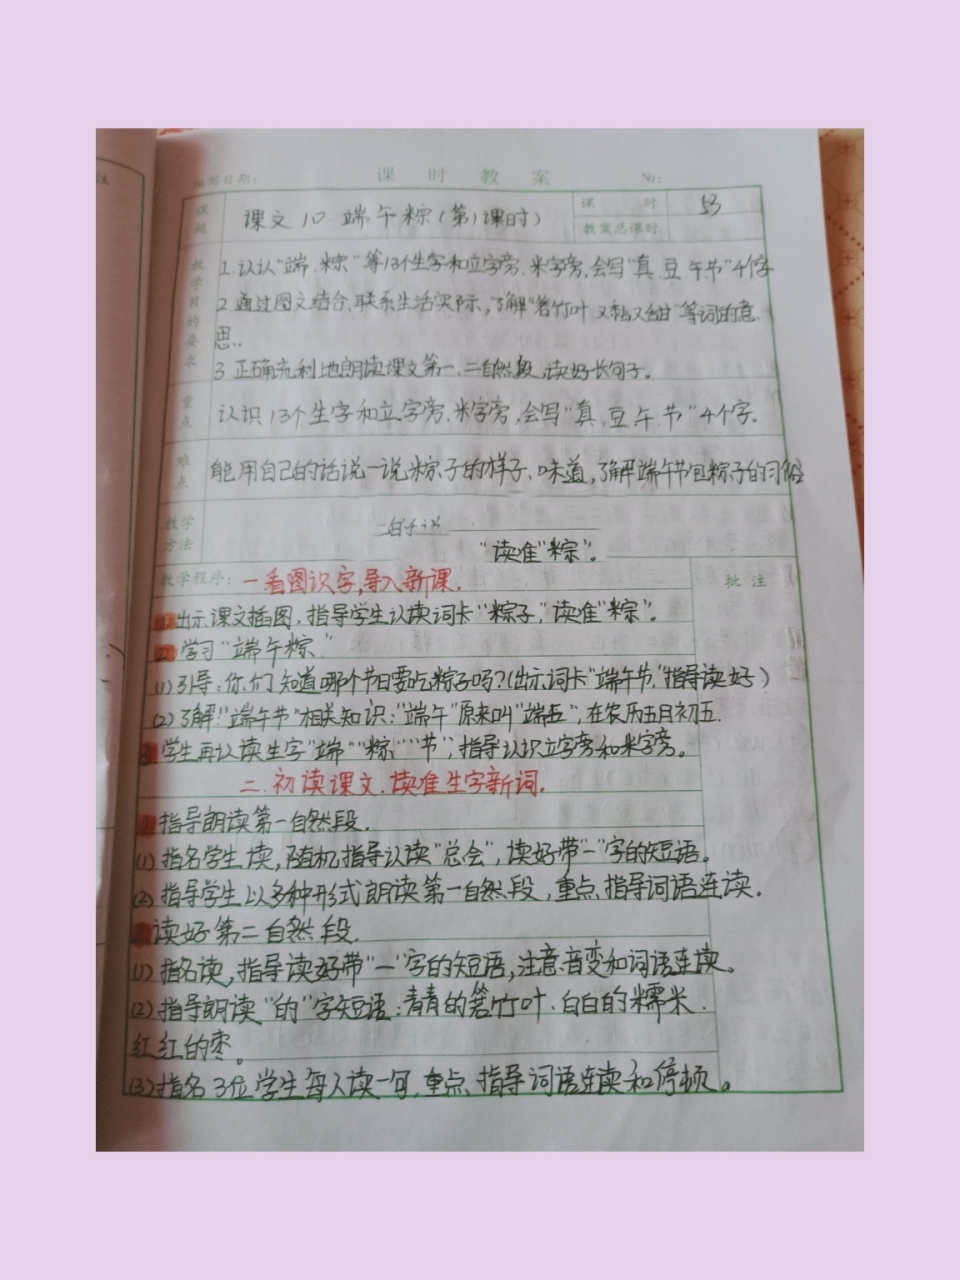 编写日期： 课 时 教 案 №：
课题 课文10 端午粽（第1课时） 课 时 53
教案总课时
教学目的要求
1. 认认“端、粽”等13个生字和立字旁、米字旁，会写“真、豆、午、节”4个字
2. 通过图文结合、联系生活实际，了解“箬竹叶 又黏又甜”等词的意
思..
3 正确流利地朗读课文第一、二自然段，读好长句子。
重点 认识13个生字和立字旁、米字旁，会写“真、豆、午、节”4个字.
难点 能用自己的话说一说粽子的样子、味道，了解端午节包粽子的习俗
教学方法
“读准“粽”。
教学程序： 一 看图识字，导入新课. 批 注
出示课文插图，指导学生认读词卡“粽子，”读准“粽”。
学习“端午粽”
(1)引导：你们知道哪个节日要吃粽子吗？(出示词卡“端午节，”指导读好）
(2)了解！“端午节”相关知识：“端午”原来叫“端五”，在农历五月初五.
学生再认读生字“端”“粽”“节”，指导认识立字旁和米字旁。
二.初读课文.读准生字新词.
指导朗读第一自然段.
(1)指名学生读，随机指导认读“总会”，读好带“一”字的短语。
(2)指导学生以多种形式朗读第一自然段，重点指导词语连读.
读好第二自然段.
(1)指名读，指导读好带“一”字的短语，注意音变和词语连读。
(2)指导朗读“的”字短语：青青的箬竹叶、白白的糯米.
红红的枣。
(3)指名3位学生每人读一句，重点指导词语连读和停顿。